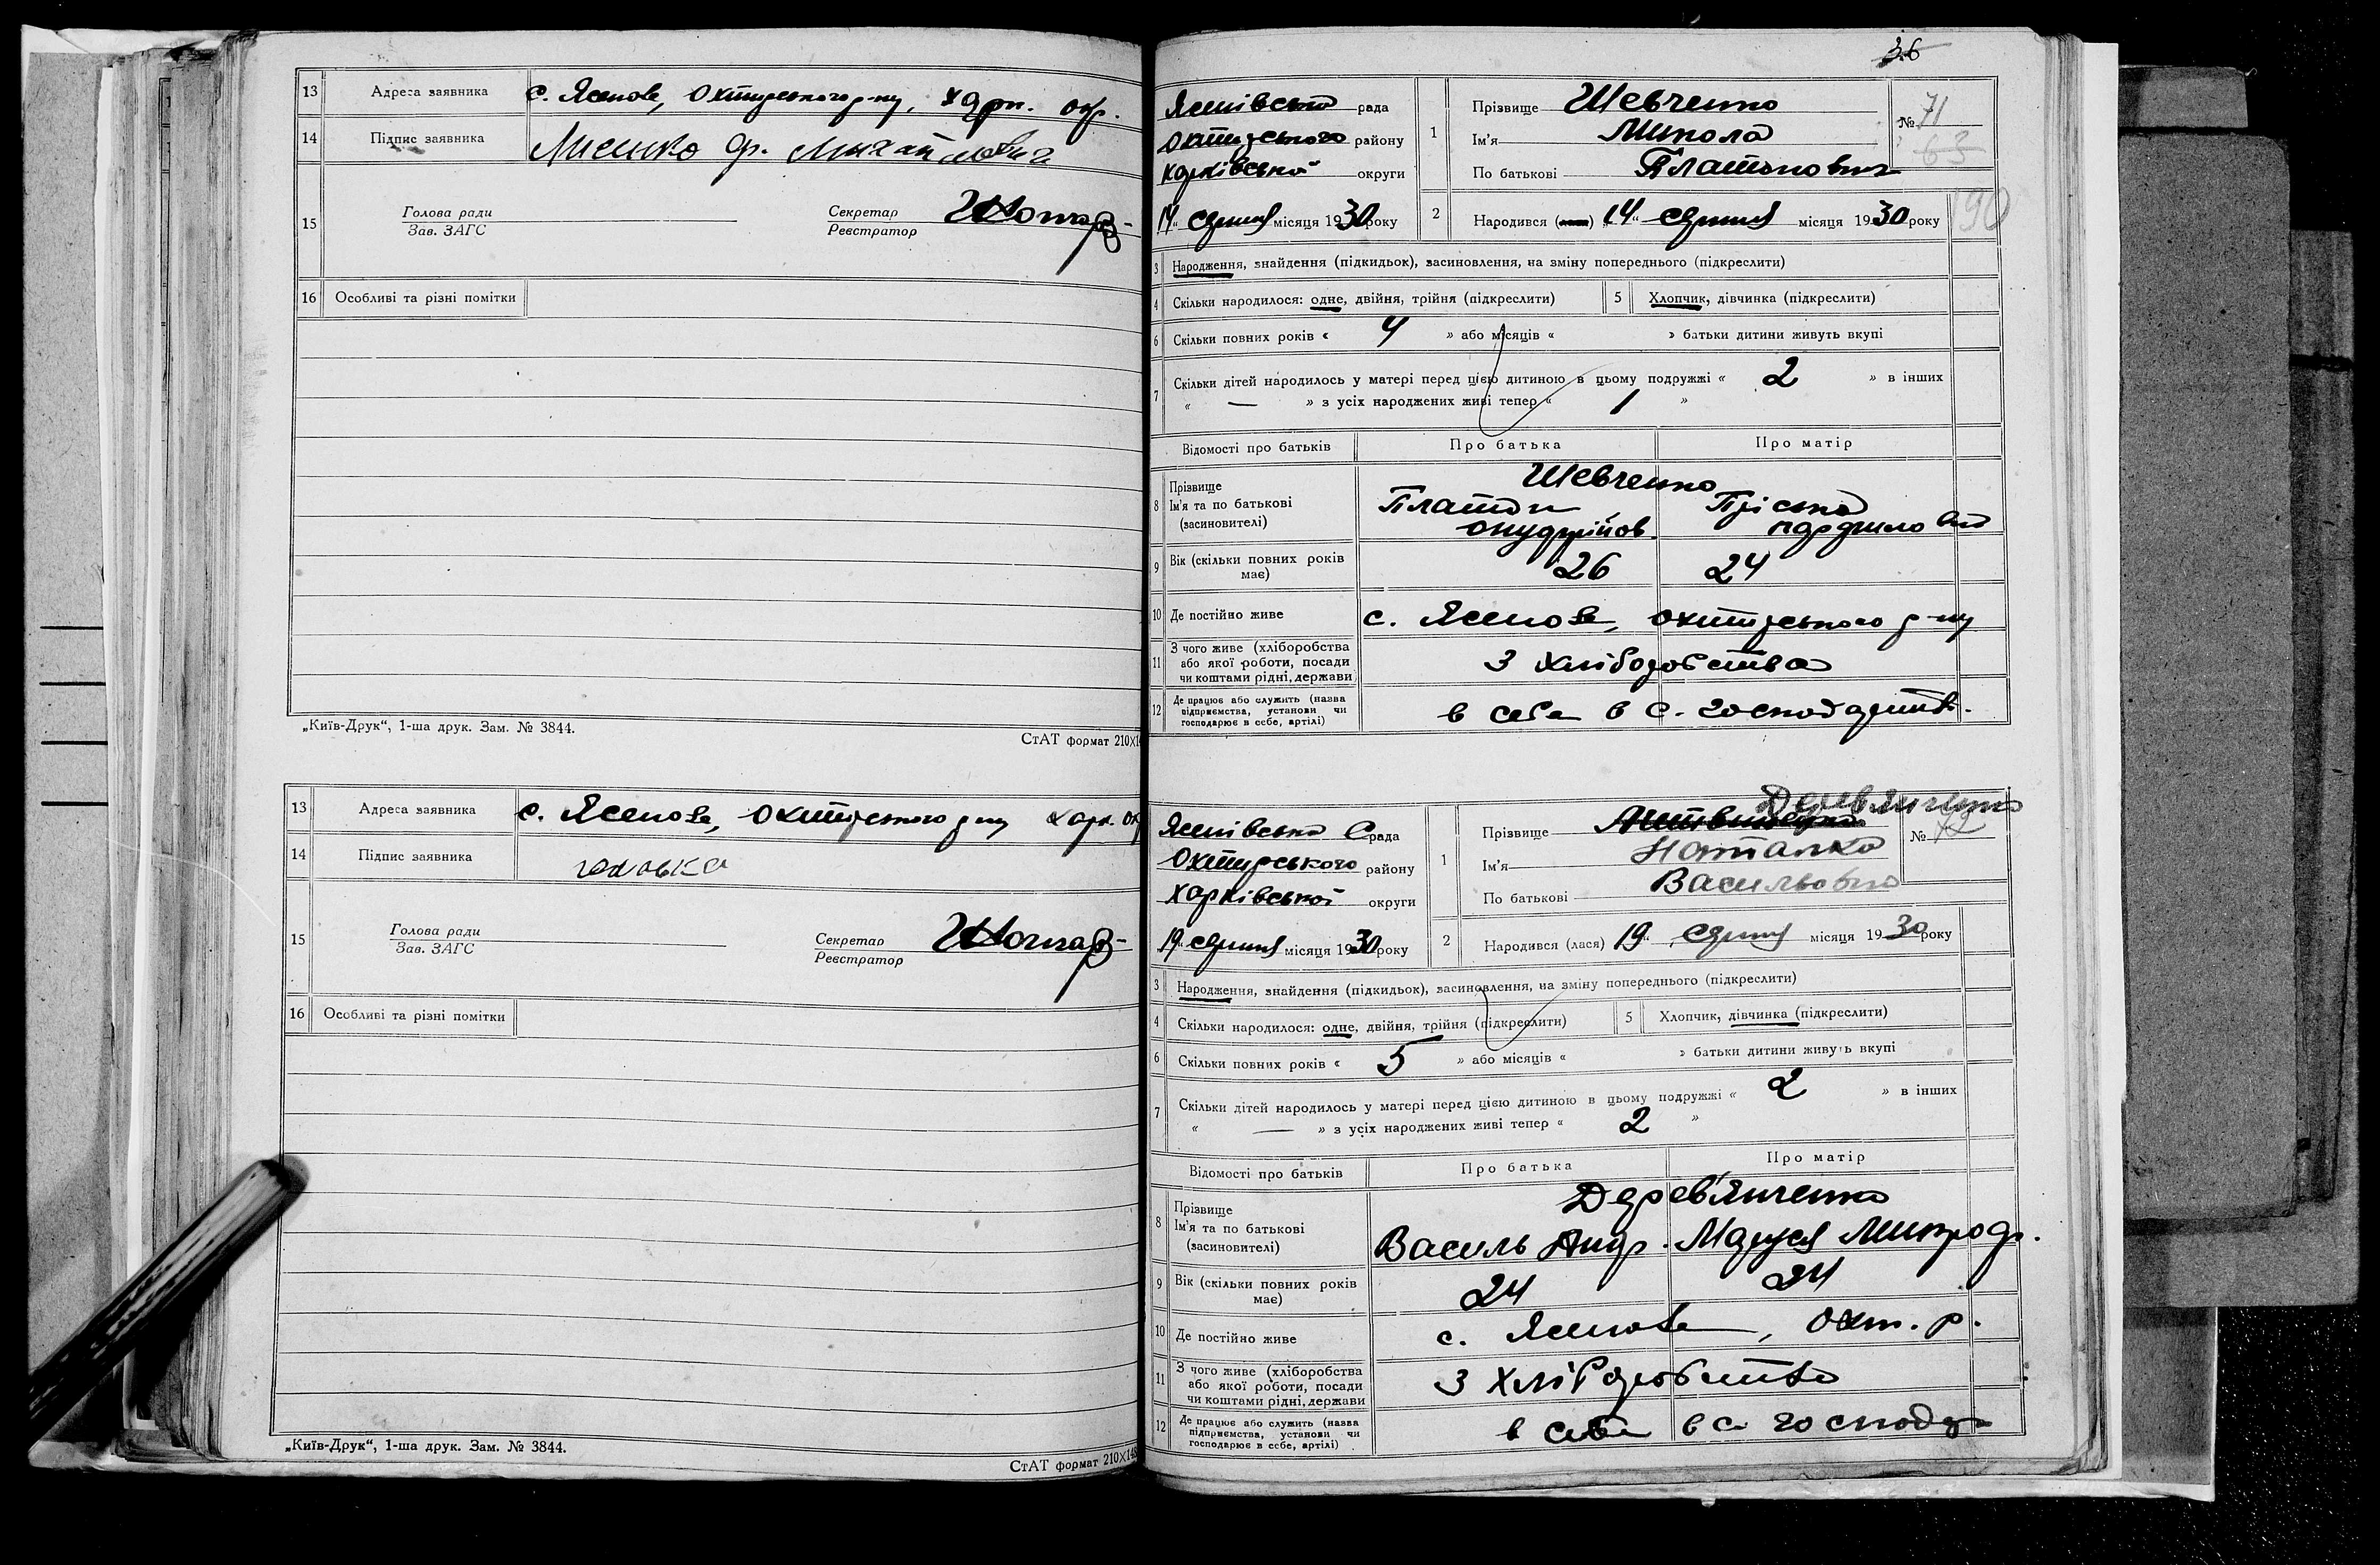 13 Адреса заявника с. Ясенове, Охтирського р-ну, Харк. окр.
14 Підпис заявника Лисенко Михайлович
15 Голова ради
Зав. ЗАГС
Секретар
Реєстратор
16 Особливі та різні помітки
„Київ-Друк“, 1-ша друк. Зам. № 3844.
СтАТ формат 210×14
13 Адреса заявника с. Ясенове, Охтирського р-ну Харк. ок
14 Підпис заявника
15 Голова ради
Зав. ЗАГС
Секретар
Реєстратор
16 Особливі та різні помітки
„Київ-Друк“, 1-ша друк. Зам. № 3844.
СтАТ формат 210×148
36
Ясенівська рада
Охтирського району
Харківської округи
14 серпня місяця 1930 року
1 Прізвище Шевченко
Ім'я Микола
По батькові Платонович
№ 71
63
190
2 Народився (лася) 14 серпня місяця 1930 року
3 Народження, знайдення (підкидьок), засиновлення, на зміну попереднього (підкреслити)
4 Скільки народилося: одне, двійня, трійня (підкреслити) 5 Хлопчик, дівчинка (підкреслити)
6 Скільки повних років « 4 » або місяців « » батьки дитини живуть вкупі
7 Скільки дітей народилось у матері перед цією дитиною в цьому подружжі « 2 » в інших
« — » з усіх народжених живі тепер « 1 »
Відомості про батьків Про батька Про матір
8 Прізвище Шевченко
Ім'я та по батькові Платон Пріська
(засиновителі) Онуфрійов.
9 Вік (скільки повних років має) 26 24
10 Де постійно живе с. Ясенове, Охтирського р-ну
11 З чого живе (хліборобства або якої роботи, посади чи коштами рідні, держави) З хліборобства
12 Де працює або служить (назва підприємства, установи чи господарює в себе, артілі) в себе в с. господарств.
Ясенівська С рада
Охтирського району
Харківської округи
19 серпня місяця 1930 року
Дерев'янченко
1 Прізвище
Ім'я Наталка
По батькові Васильовна
№ 72
2 Народився (лася) 19 серпня місяця 1930 року
3 Народження, знайдення (підкидьок), засиновлення, на зміну попереднього (підкреслити)
4 Скільки народилося: одне, двійня, трійня (підкреслити) 5 Хлопчик, дівчинка (підкреслити)
6 Скільки повних років « 5 » або місяців « » батьки дитини живуть вкупі
7 Скільки дітей народилось у матері перед цією дитиною в цьому подружжі « 2 » в інших
« — » з усіх народжених живі тепер « 2 »
Відомості про батьків Про батька Про матір
8 Прізвище Дерев'янченко
Ім'я та по батькові Василь Андр. Маруся Митроф.
(засиновителі)
9 Вік (скільки повних років має) 24 24
10 Де постійно живе с. Ясенове, Охт. р.
11 З чого живе (хліборобства або якої роботи, посади чи коштами рідні, держави З хліборобства
12 Де працює або служить (назва підприємства, установи чи господарює в себе, артілі) в себе в с господар